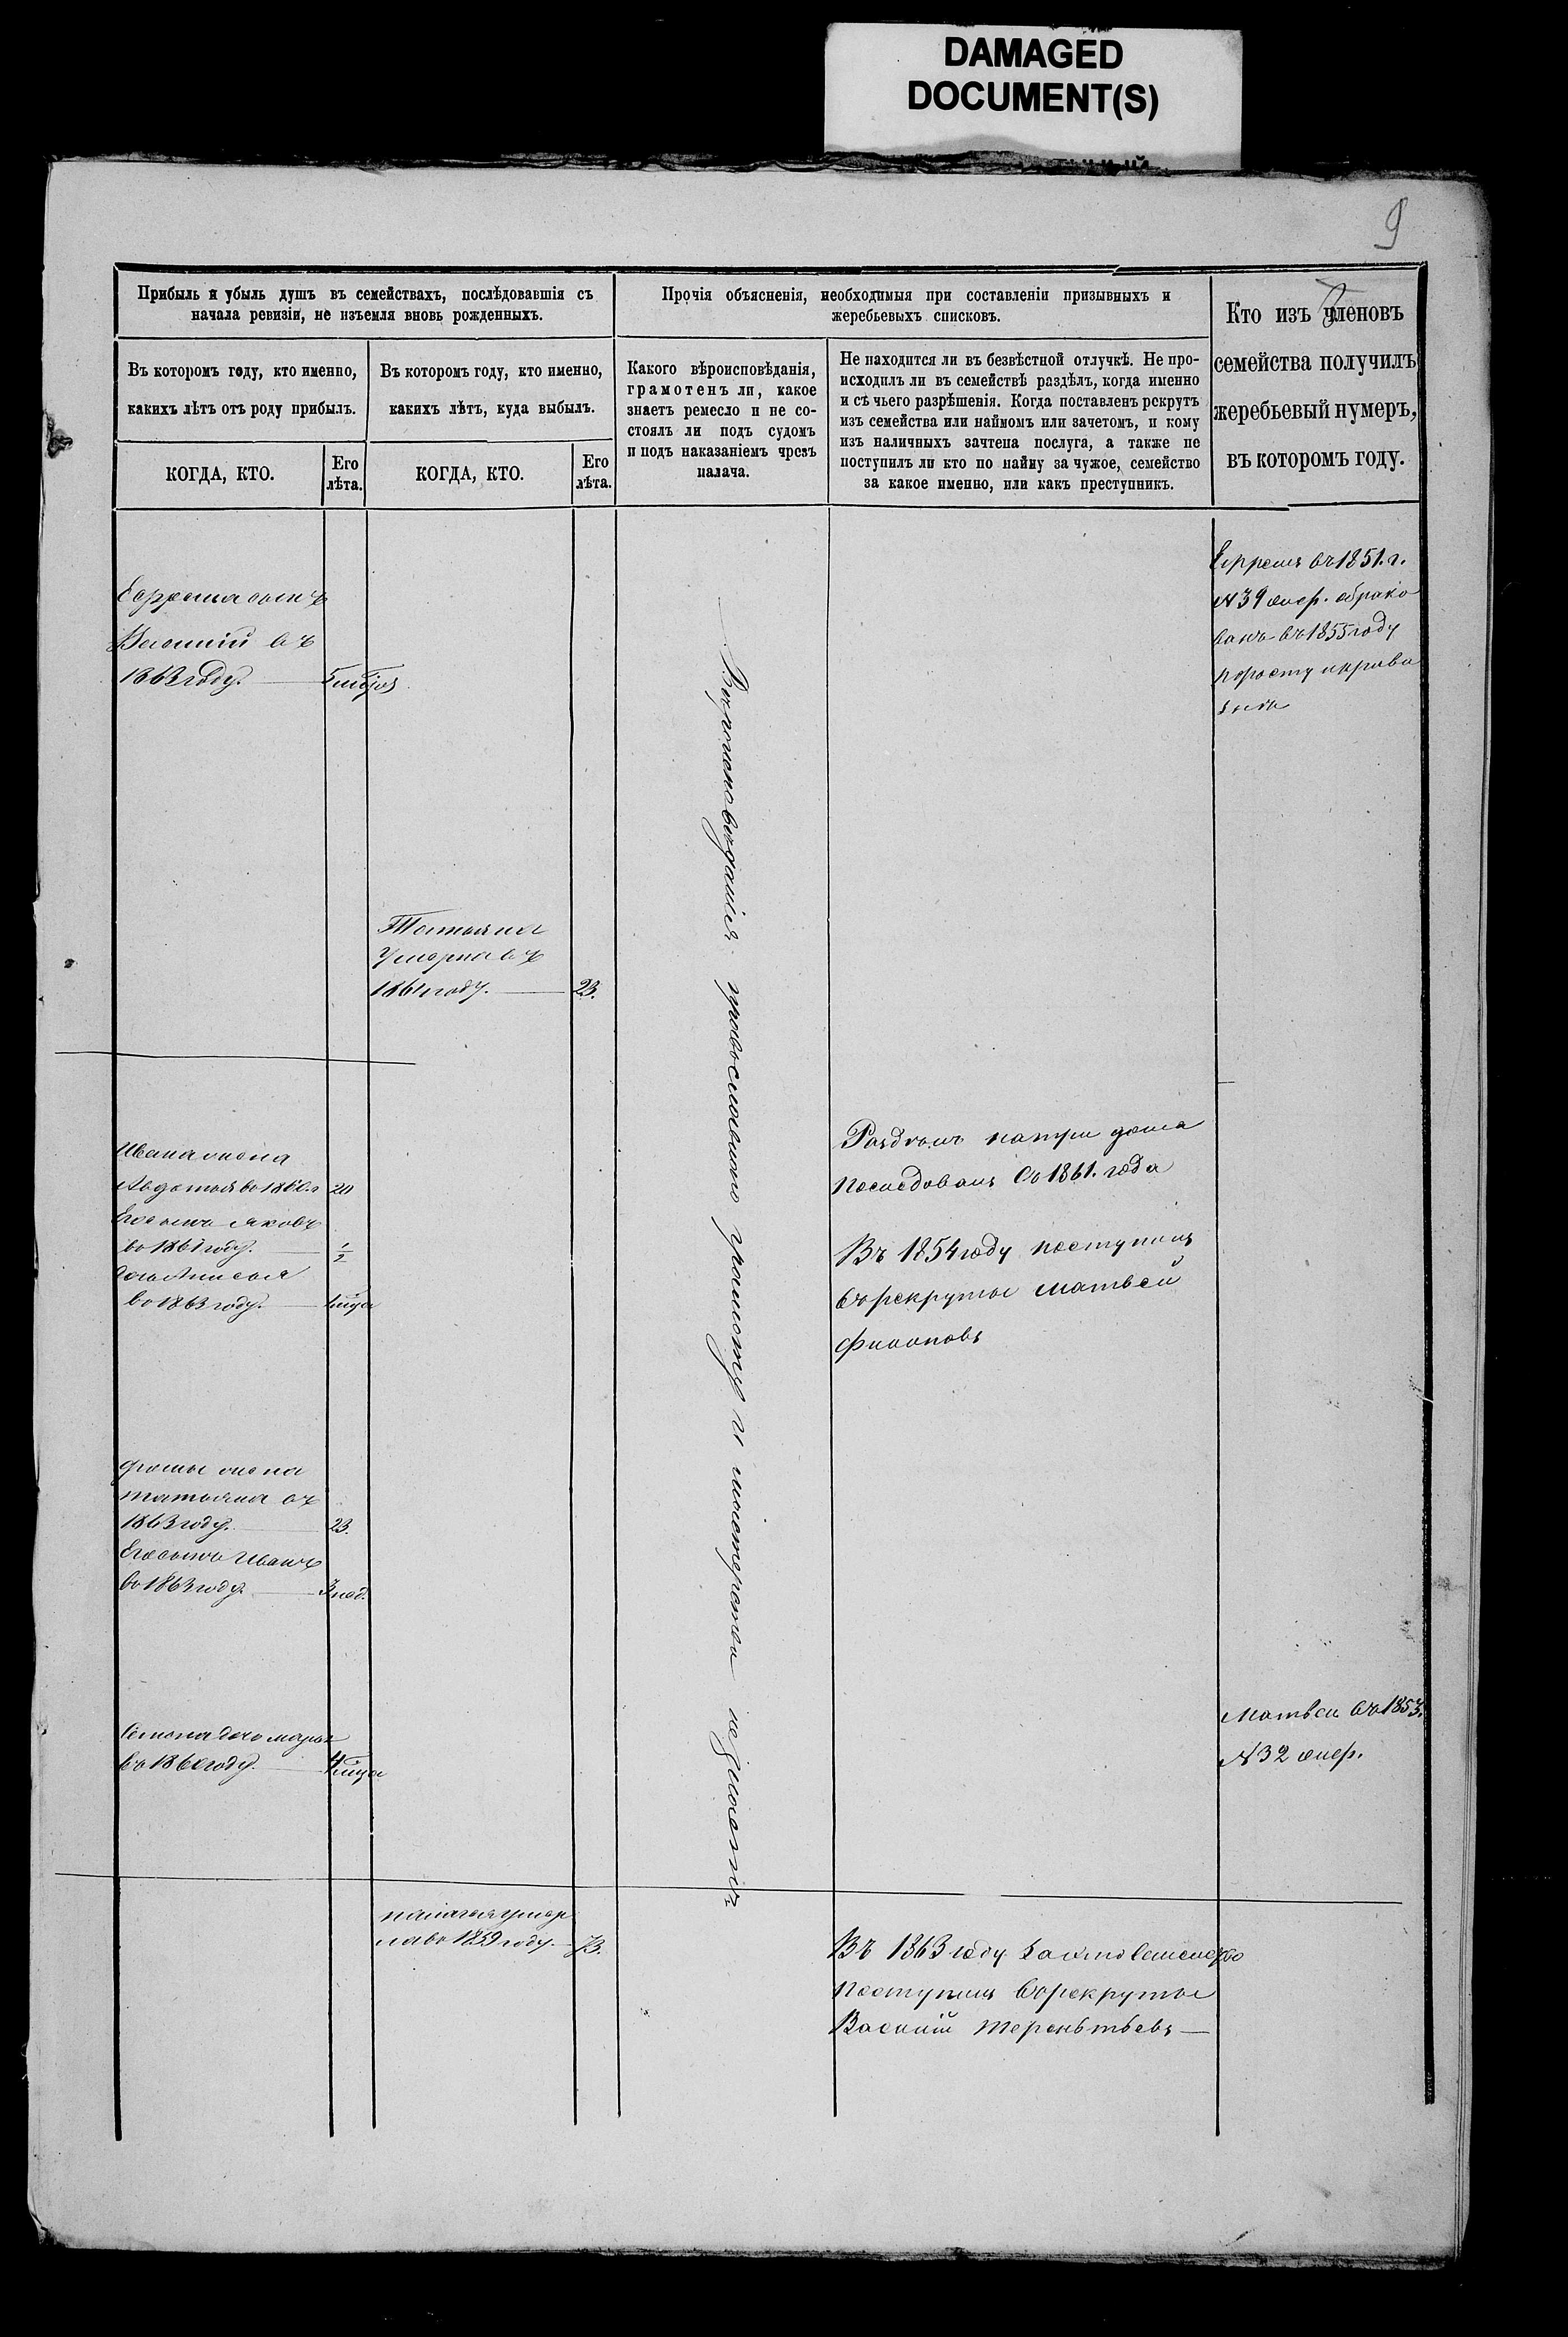 DAMAGED
DOCUMENT(S)
9
Прибыль и убыль душъ въ семействахъ, послѣдовавшія съ
начала ревизіи, не изъемля вновь рожденныхъ.
Въ которомъ году, кто именно,
какихъ лѣтъ отъ роду прибылъ.
Въ которомъ году, кто именно,
какихъ лѣтъ, куда выбылъ.
КОГДА, КТО.
Его
лѣта.
КОГДА, КТО.
Его
лѣта.
Прочія объясненія, необходимыя при составленіи призывныхъ и
жеребьевыхъ списковъ.
Какого вѣроисповѣданія,
грамотенъ ли, какое
знаетъ ремесло и не со-
стоялъ ли подъ судомъ
и подъ наказаніемъ чрезъ
палача.
Не находится ли въ безвѣстной отлучкѣ. Не про-
исходилъ ли въ семействѣ раздѣлъ, когда именно
и съ чьего разрѣшенія. Когда поставленъ рекрутъ
изъ семейства или наймомъ или зачетомъ, и кому
изъ наличныхъ зачтена послуга, а также не
поступилъ ли кто по найму за чужое, семейство
за какое именно, или какъ преступникъ.
Кто изъ членовъ
семейства получилъ
жеребьевый нумеръ,
въ которомъ году.
Ефрема сынъ
Василий въ
1863 году. 5
Татьяна
Умерла въ
1861 году. 23.
Ивана жена
Авдотья во 186 20
Его сынъ Яковъ
во 1861 году. 1/2
дочь
во 1863 году.
Фомы жена
татьяна въ
1863 году. 23.
Его сынъ Иванъ
во 1863 году 3 нед.
Семена дочь марья
во 186 году. 4
пелагея умер
ла во 1859 году. 73.
Вероисповедания православного грамоте и мастерства не знаетъ
Раздѣлъ на три дома
последовалъ Со 1861. года
Въ 1854 году поступилъ
въ рекруты матвей
филиповъ
Въ 1863 году за
поступилъ въ рекруты
Василий терентьевъ
Ефремъ въ 1851. г.
N 39 жер. обрако
ванъ въ 1855 году
по росту и
Матвей въ 1853.
N 32 жер.